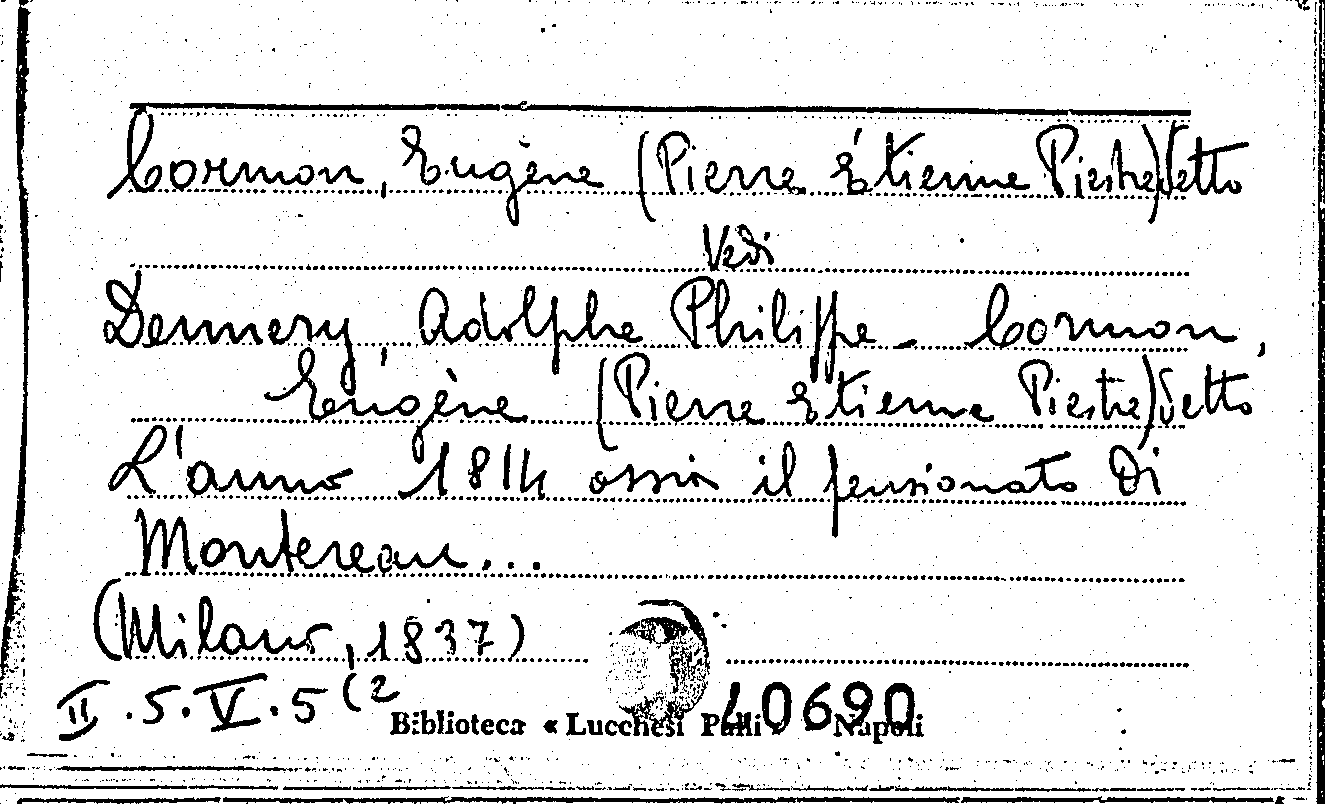 Cormon, Eugène (Pierre Étienne Piestre) detto
Vedi
Dennery, Adolphe Philippe - Cormon,
Eugène (Pierre Etienne Piestre) detto
L'anno 1814 ossia il pensionato di
Montereau...
(Milano, 1837)
II.5.V.5(2
40690
Biblioteca « Lucchesi Palli » Napoli